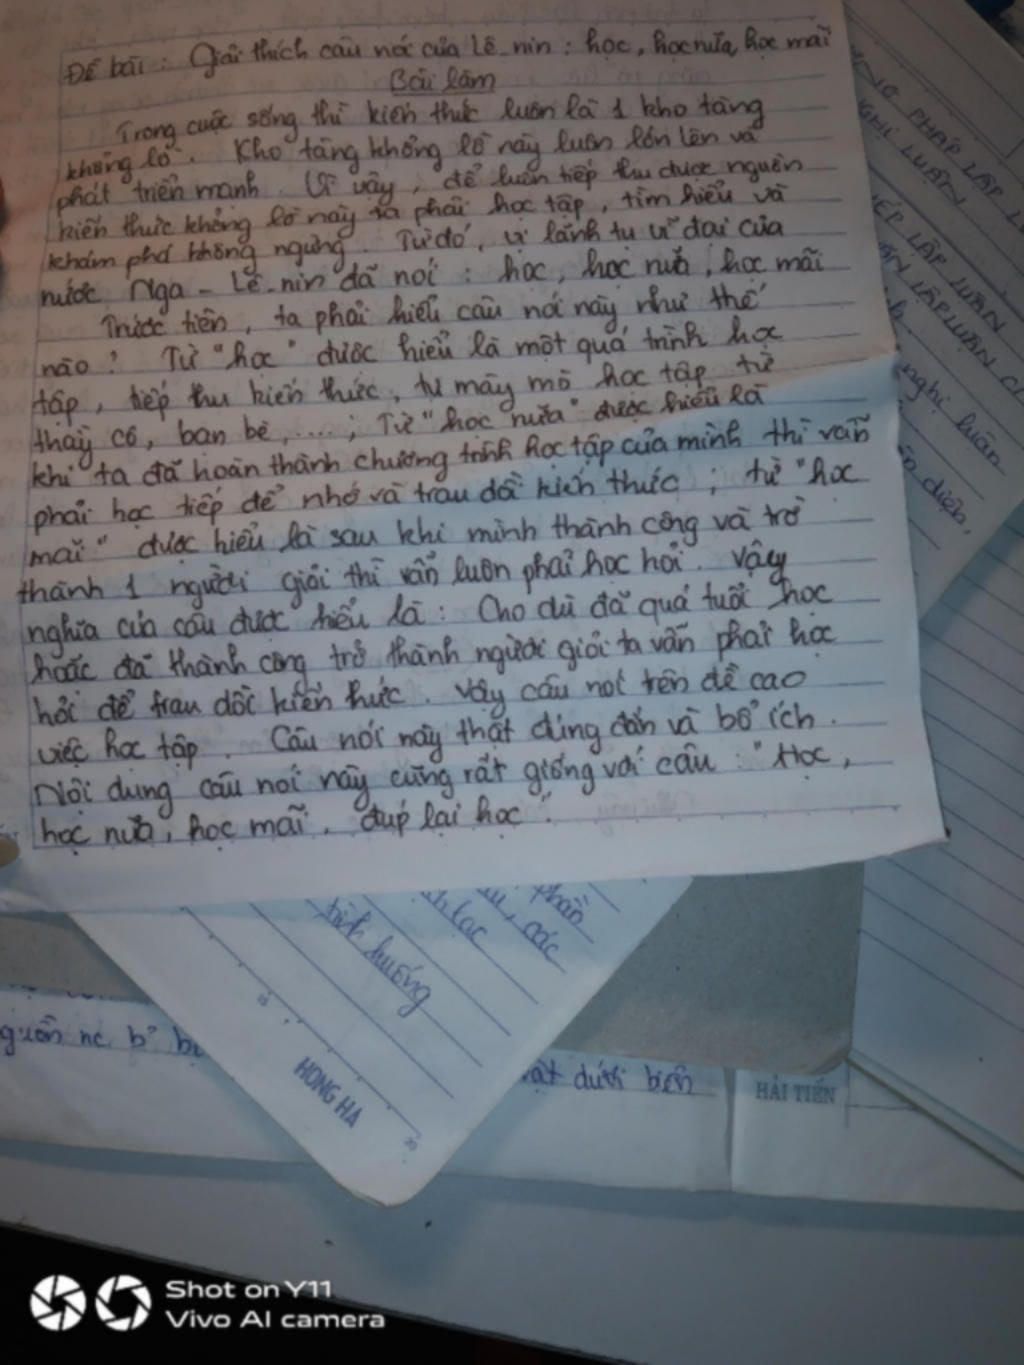 Đề bài : Giải thích câu nói của Lê-nin : học, học nữa, học mãi
Bài làm
Trong cuộc sống thì kiến thức luôn là 1 kho tàng
khổng lồ. Kho tàng khổng lồ này luôn lớn lên và
phát triển mạnh. Vì vậy, để luôn tiếp thu được nguồn
kiến thức khổng lồ này ta phải học tập, tìm hiểu và
khám phá không ngừng. Từ đó, vị lãnh tụ vĩ đại của
nước Nga - Lê-nin đã nói : học, học nữa, học mãi
Trước tiên, ta phải hiểu câu nói này như thế
nào ? Từ "học" được hiểu là một quá trình học
tập, tiếp thu kiến thức, tự mày mò học tập từ
thầy cô, bạn bè, ....; Từ "học nữa" được hiểu là
khi ta đã hoàn thành chương trình học tập của mình thì vẫn
phải học tiếp để nhớ và trau dồi kiến thức ; từ "học
mãi" được hiểu là sau khi mình thành công và trở
thành 1 người giỏi thì vẫn luôn phải học hỏi. Vậy
nghĩa của câu được hiểu là : Cho dù đã quá tuổi học
hoặc đã thành công trở thành người giỏi ta vẫn phải học
hỏi để trau dồi kiến thức. Vậy câu nói trên đề cao
việc học tập. Câu nói này thật đúng đắn và bổ ích.
Nội dung câu nói này cũng rất giống với câu : "Học,
học nữa, học mãi, đúp lại học".
NG PHÁP LẬP
NGHỊ LUẬN
PHÉP LẬP LUẬN
LẬP LUẬN
nghị luận
diện,
phần
các
lạc
tình huống
HONG HA
nguồn nc bị
dưới biển
HẢI TIẾN
Shot on Y11
Vivo AI camera